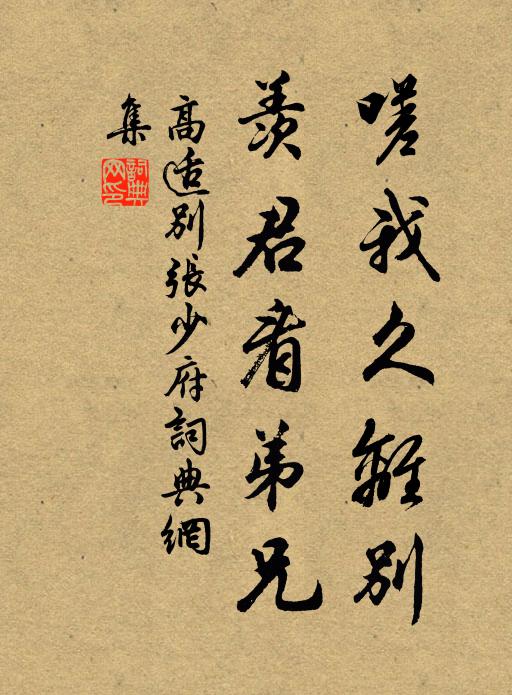 嗟我久離別
羨君看弟兄
高适別張少府詞典網
集
詞典
网印